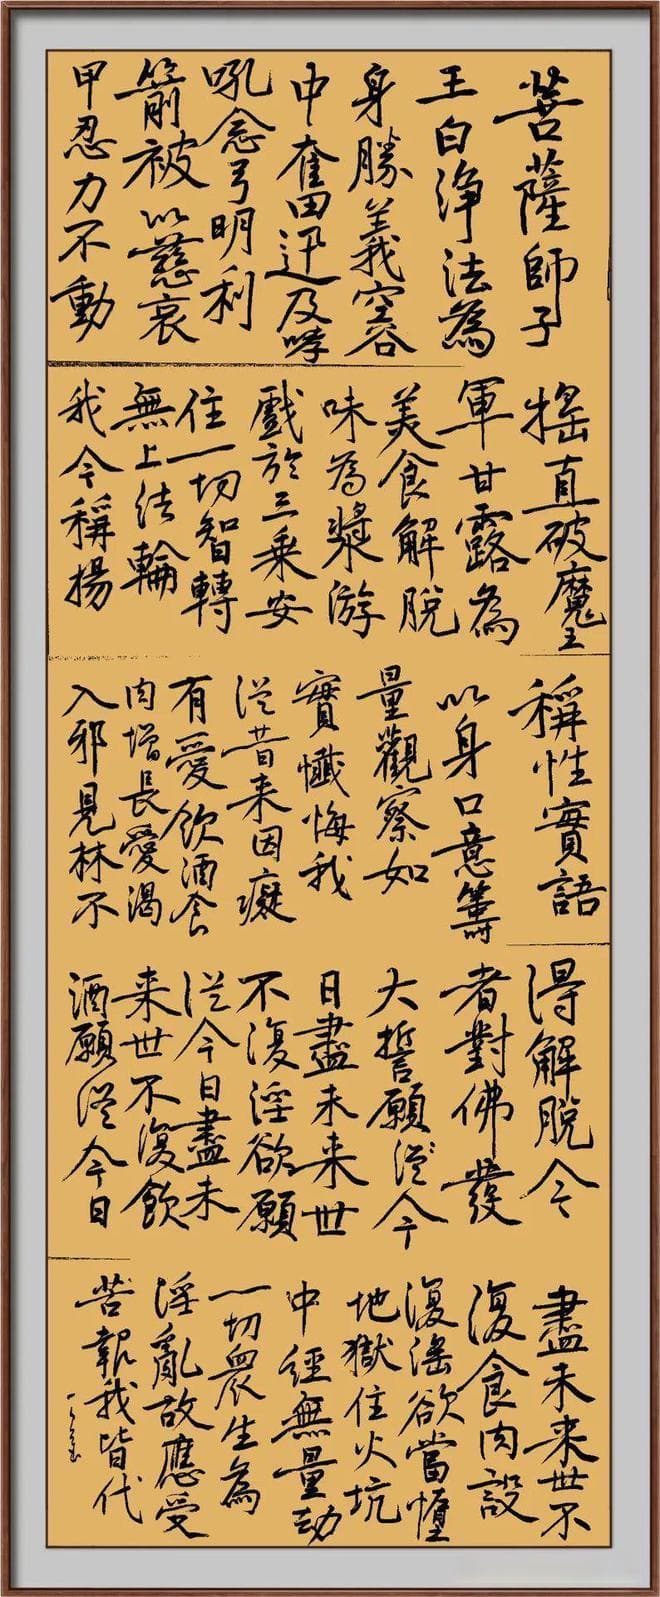 菩薩師子
王白淨法為
身勝義空谷
中奮迅及哮
吼念弓明利
箭被以慈哀
甲忍力不動
搖直破魔王
軍甘露為
美食解脫
味為漿游
戲於三乘安
住一切智轉
無上法輪
我今稱揚
稱性實語
以身口意籌
量觀察如
實懺悔我
從昔来因癡
有愛飲酒食
肉增長愛渴
入邪見林不
得解脫今
者對佛發
大誓願從今
日盡未来世
不復淫欲願
從今日盡未
来世不復飲
酒願從今日
盡未来世不
復食肉設
復淫欲當墮
地獄住火坑
中經無量劫
一切衆生為
淫亂故應受
苦報我皆代